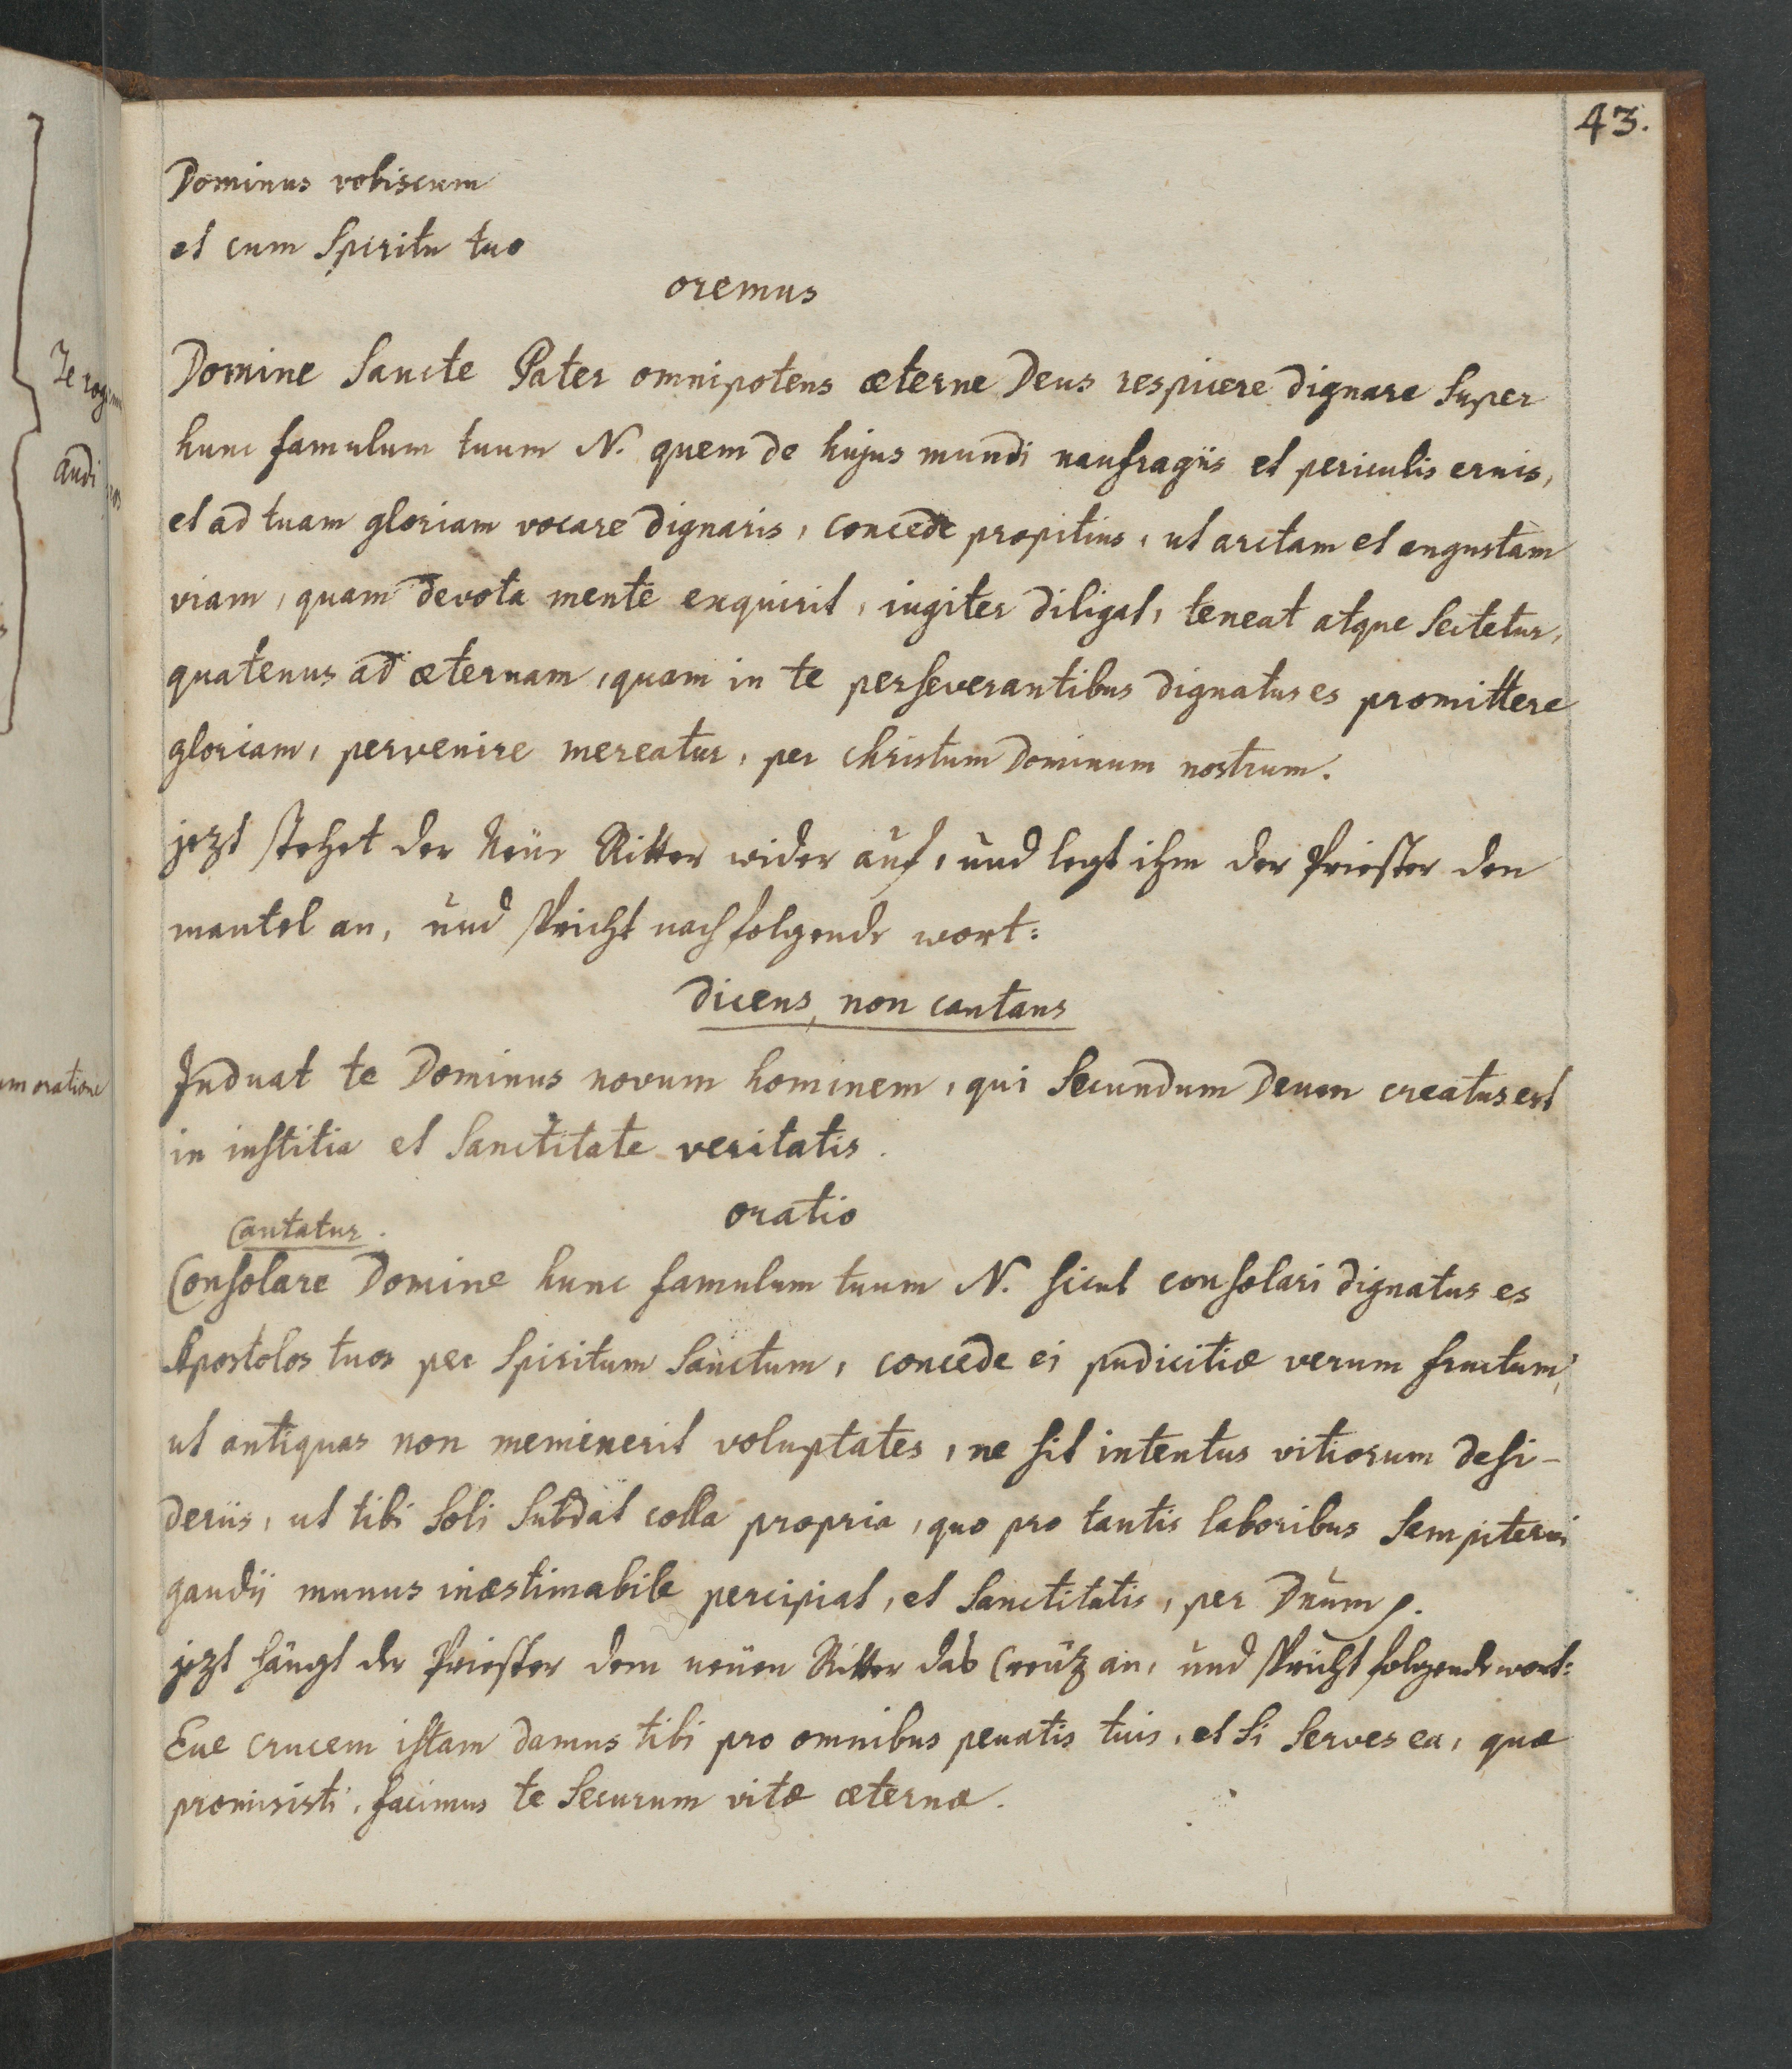 43.
Dominus vobiscum
et cum Spiritu tuo
oremus
Domine Sancte Pater omnipotens æterne Deus respicere dignare Super
hunc famulum tuum N. quem de hujus mundi naufragiis et periculis eruis,
et ad tuam gloriam vocare dignaris, concede propitius, ut arctam et angustam
viam, quam devota mente exquirit, iugiter diligat, teneat atque Sectetur,
quatenus ad æternam, quam in te perseverantibus dignatus es promittere
gloriam, pervenire mereatur, per christum Dominum nostrum.
jezt stehet der Neüe Ritter wider auf, und legt ihm der Priester den
mantel an, und spricht nachfolgende wort:
dicens, non cantans
Induat te Dominus novum hominem, qui Secundum Deum creatus est
in iustitia et Sanctitate veritatis.
oratio
Cantatur.
Consolare Domine hunc famulum tuum N. sicut consolari dignatus es
Apostolos tuos per Spiritum Sanctum, concede ei pudicitiæ verum fructum,
ut antiquas non meminerit voluptates, ne sit intentus vitiorum desi-
deriis, ut tibi Soli Subdat colla propria, quo pro tantis laboribus Sempiterni
gaudij munus inæstimabile percipiat, et Sanctitatis, per Dnum
jezt hängt der Priester dem neüen Ritter das Creütz an, und spricht folgende wort:
Ecce crucem istam damus tibi pro omnibus peccatis tuis, et Si Serves ea, quæ
promisisti, facimus te Securum vitæ æternæ.
Te rog
audi nos
um oratione